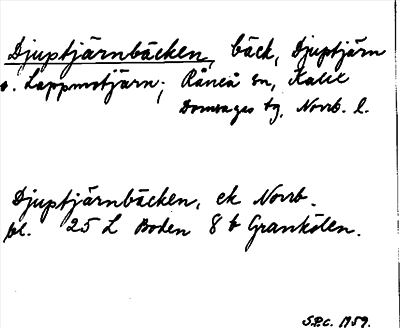 Djuptjärnbäcken, bäck, Djuptjärn
o. Lappmotjärn; Råneå sn, Kalix
Domsagas tg, Norrb. l.
Djuptjärnbäcken, ek Norrb.
bl. 25 L Boden 8 b Grankölen.
S.P.C. 1959.